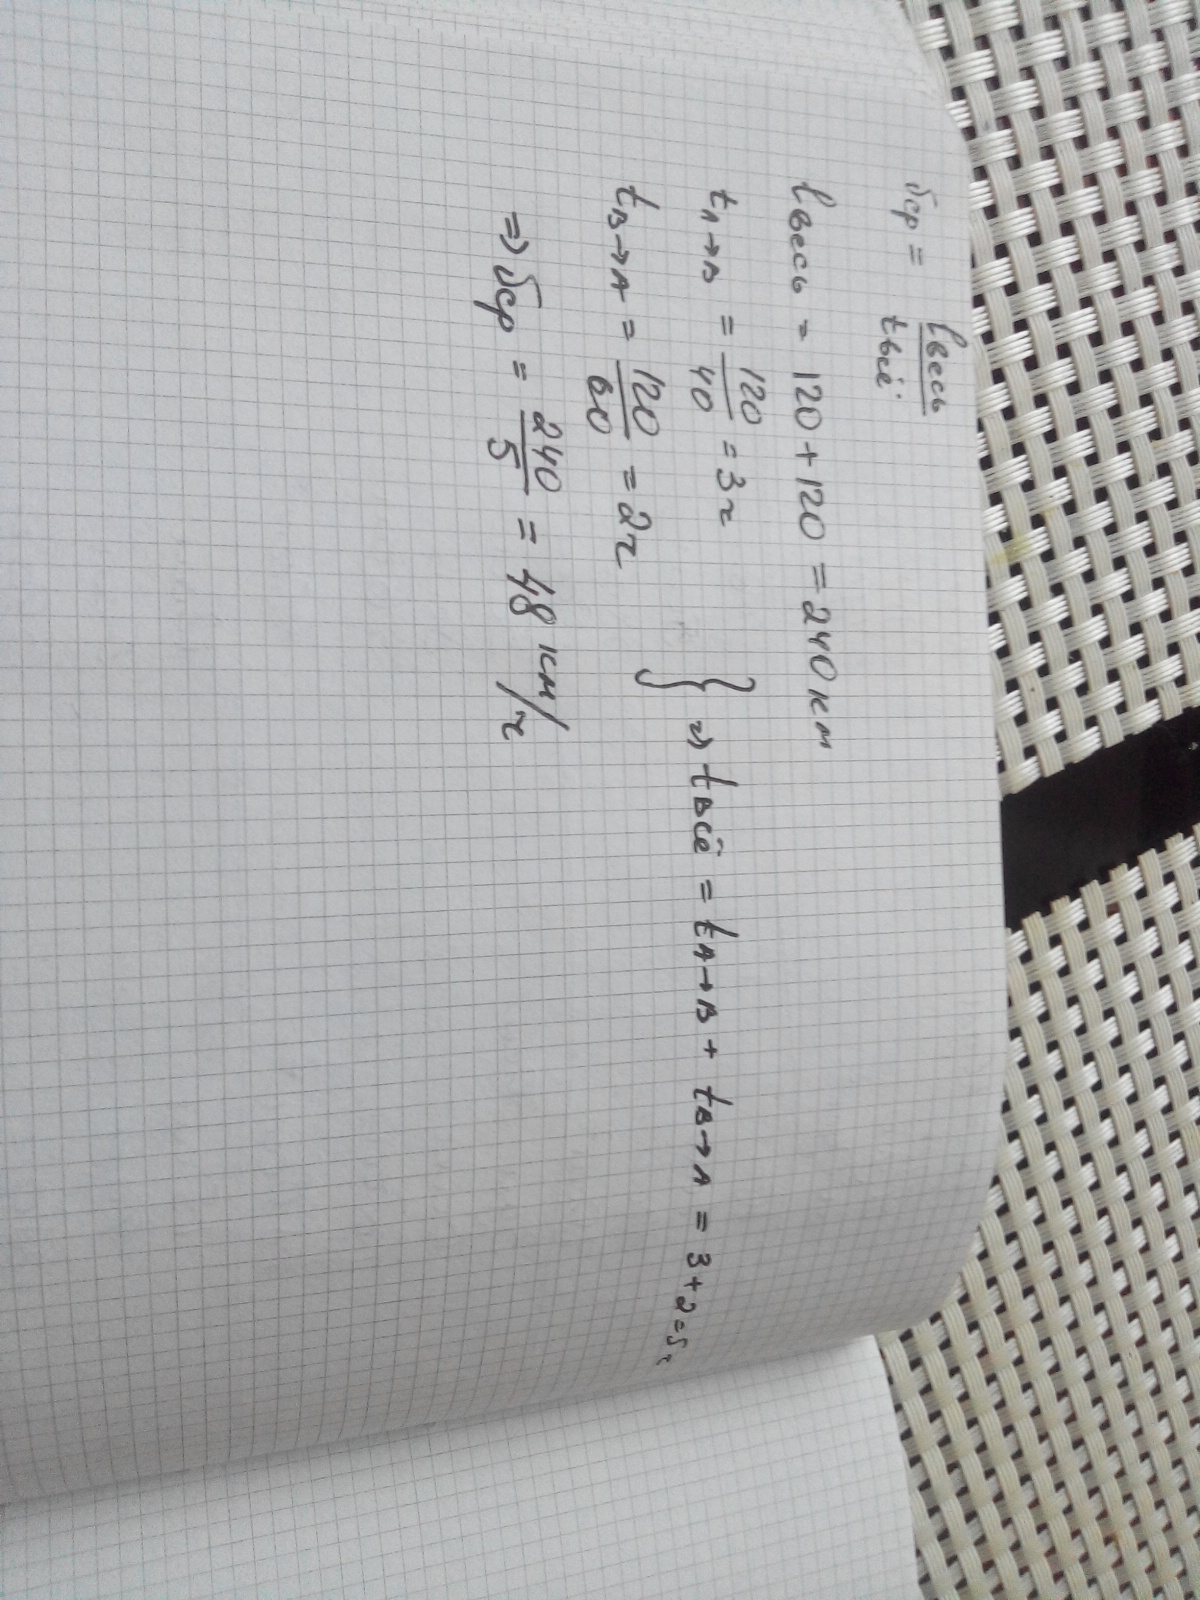 υср = lвесь / tвсё
lвесь = 120 + 120 = 240 км
tA→B = 120/40 = 3ч
tB→A = 120/60 = 2ч
} => tвсё = tA→B + tB→A = 3 + 2 = 5 ч
=> υср = 240/5 = 48 км/ч